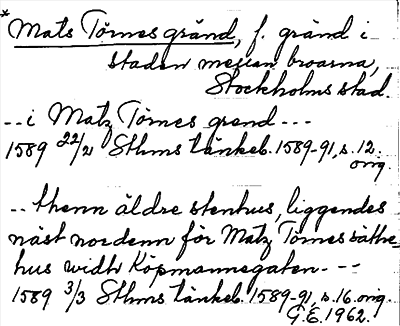 *Mats Törnes gränd, f. gränd i
staden mellan broarna,
Stockholms stad.
--i Matz Törnes grend---
1589 22/2 Sthms tänkeb. 1589-91, s. 12.
orig.
-- thenn äldre stenhus, liggendes
näst nordenn för Matz Törnes sätthe=
hus widh Köpmannegaten---
1589 3/3 Sthms tänkeb. 1589-91, s. 16. orig.
G.E. 1962.